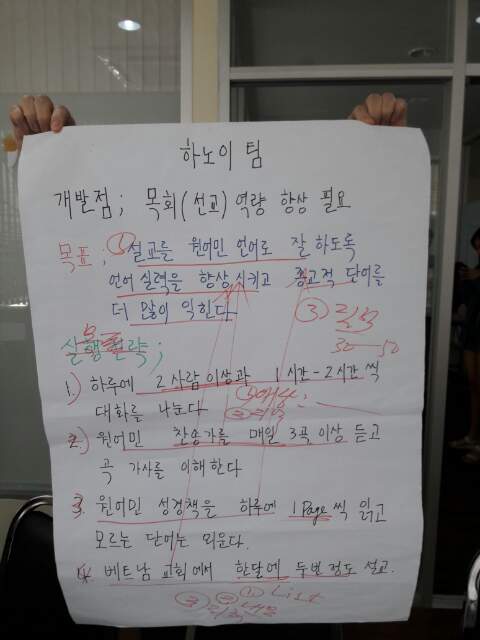 하노이 팀
개발점; 목회(선교) 역량 향상 필요
목표; ① 설교를 원어민 언어로 잘 하도록
언어 실력을 향상 시키고 종교적 단어를
더 많이 익힌다
③
30 50
실행전략;
1.) 하루에 2사람이상과 1시간-2시간 씩
대화를 나눈다
2.) 원어민 찬송가를 매일 3곡 이상 듣고
곡 가사를 이해한다
3. 원어민 성경책을 하루에 1 Page 씩 읽고
모르는 단어는 외운다.
4 베트남 교회에서 한달에 두번 정도 설교.
① List
③ ②